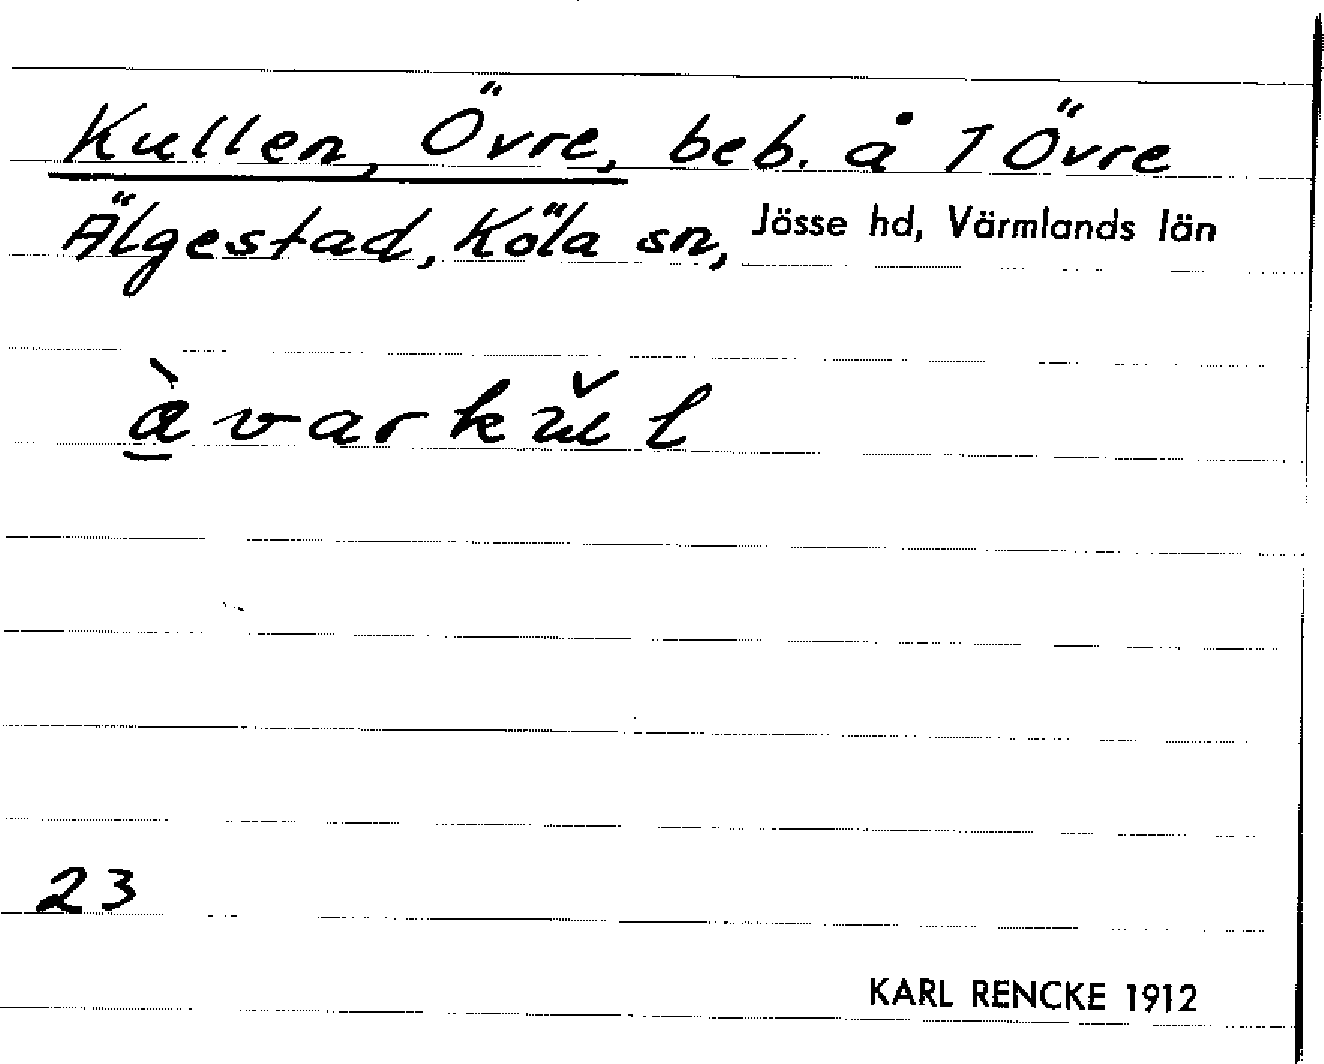 Kullen, Övre, beb. å 1 Övre
Älgestad, Köla sn, Jösse hd, Värmlands län
à̱varkŭl
23
KARL RENCKE 1912